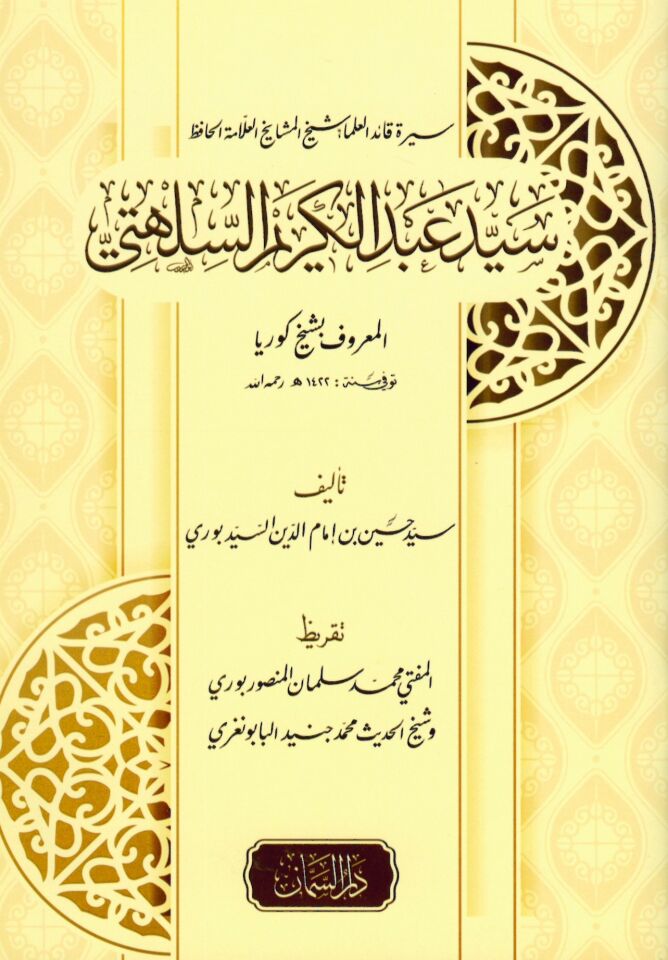 سيرة قائد العلماء شيخ المشايخ العلّامة الحافظ
سَيِّد عَبْد الكَرِيْم السِّلْهَتِيّ
المعروف بشيخ كوريا
توفي سنة : ١٤٢٢ هـ رحمه الله
تأليف
سيّد حسين بن إمام الدّين السّيّد بوري
تقريظ
المفتي محمّد سلمان المنصوربوري
وشيخ الحديث محمّد جنيد البابونغري
دار السمان